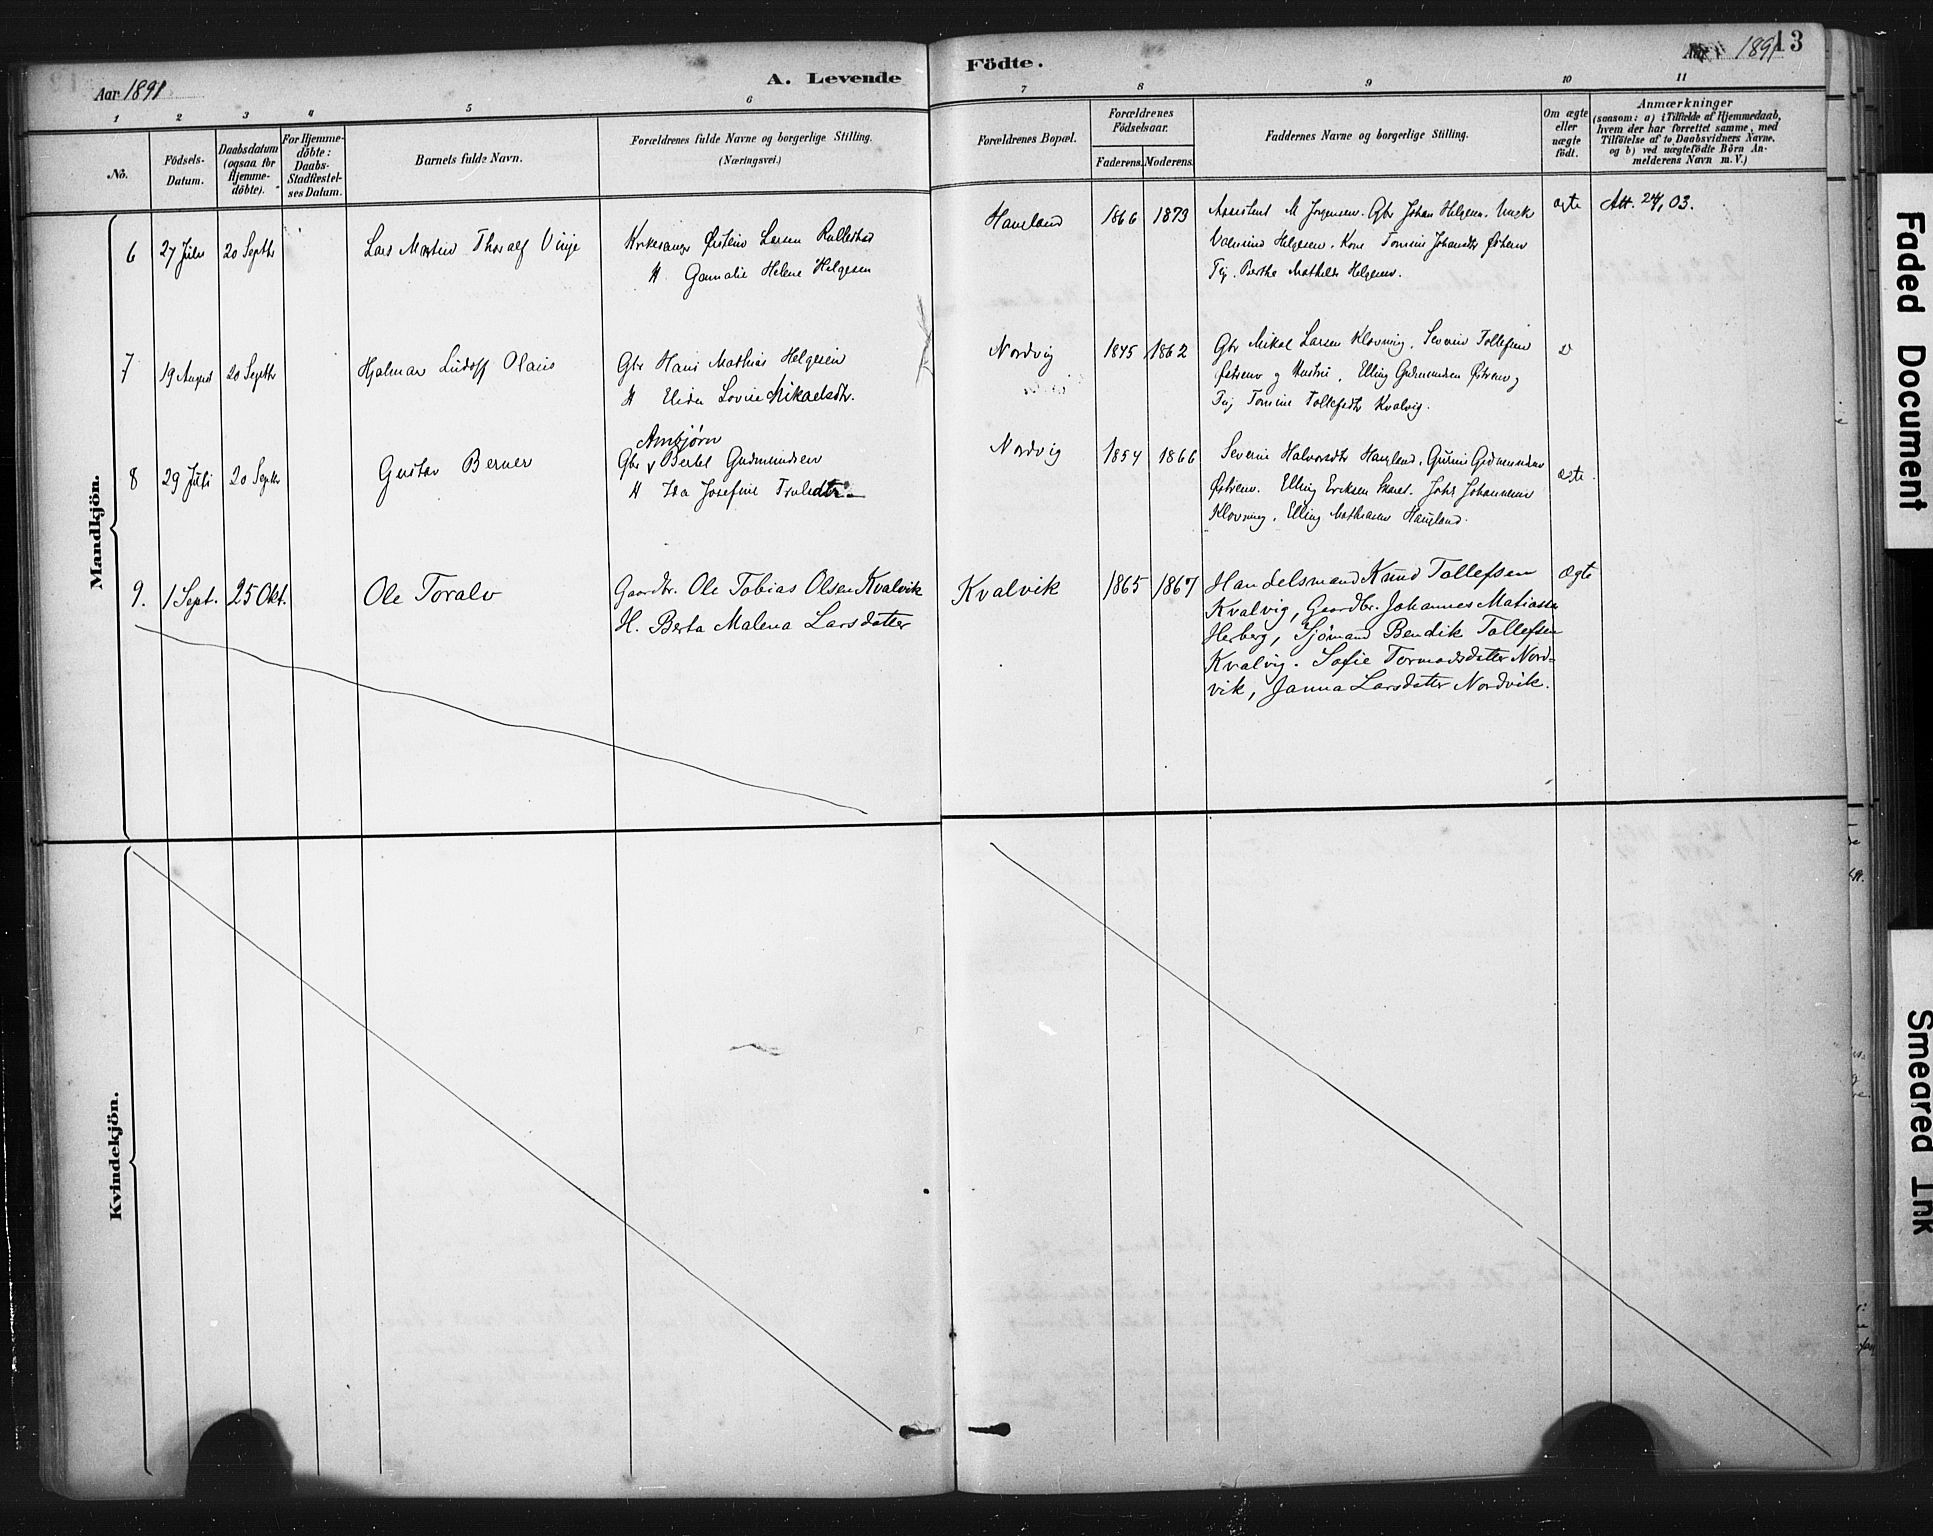 Aar 1891
A. Levende
Födte.
Aar 1891
13
1 2 3 4 5 6 7 8 9 10 11
No.
Födsels-
Datum.
Daabsdatum
(ogsaa for
Hjemme-
döbte).
For Hjemme-
döbte:
Daabs-
Stadfæstel-
ses Datum.
Barnets fulde Navn.
Forældrenes fulde Navne og borgerlige Stilling.
(Næringsvei.)
Forældrenes Bopæl.
Forældrenes
Födselsaar.
Faderens. Moderens.
Faddernes Navne og borgerlige Stilling.
Om ægte
eller
uægte
födt.
Anmærkninger
(saasom: a) i Tilfælde af Hjemmedaab,
hvem der har forrettet samme, med
Tilföielse af to Daabsvidners Navne,
og b) ved uægtefödte Börn An-
melderens Navn m. V.)
Mandkjön.
6 27 Juli 20 Septbr
Lars Martin Thoralf Vinje
Kirkesanger Østein Larsen Rullestad
H. Helene Helgesen
Haugland 1866 1873
Assistent M Jorgensen. Gbr Johan Helgesen.
Helgesen. Kone Tomine Johansdtr
Pig. Berthe Mathilde Helgesen.
ægte
Att. 24/1 03.
7 19 August 20 Septbr
Hjalmar Ludolf Olaus
Gbr Hans Mathias Helgesen
H Elida Lovise Mikaelsdtr.
Nordvig 1845 1862
Gbr Mikal Larsen Klovning, Severin Tollefsen
Østrem og Hustru, Elling Gudmundsen Østrem og
Pig Tomine Tollefsdtr Kvalvig.
8 29 Juli 20 Septbr
Gustav Berner
Arnbjørn
Gbr v Bertel Gudmundsen
H Ida Josefine Trulsdtr.
Nordvig 1854 1866
Severine Halvorsdtr Haugland, Gurine Gudmundsen
Østrem. Elling Eriksen Skaret. Johs Johannesen
Klovning, Elling Mathiasen Haugland.
ægte.
9. 1 Sept. 25 Okt.
Ole Toralv
Gaardbr. Ole Tobias Olsen Kvalvik
H. Berta Malena Larsdatter
Kvalvik 1865 1867
Handelsmand Knud Tollefsen
Kvalvig, Gaardbr. Johannes Matiassen
Herberg, Sjömand Bendik Tollefsen
Kvalvig. Sofie Tormodsdatter Nord-
vik, Janna Larsdatter Nordvik.
Ægte
Kvindekjön.
Faded Document
Smeared Ink